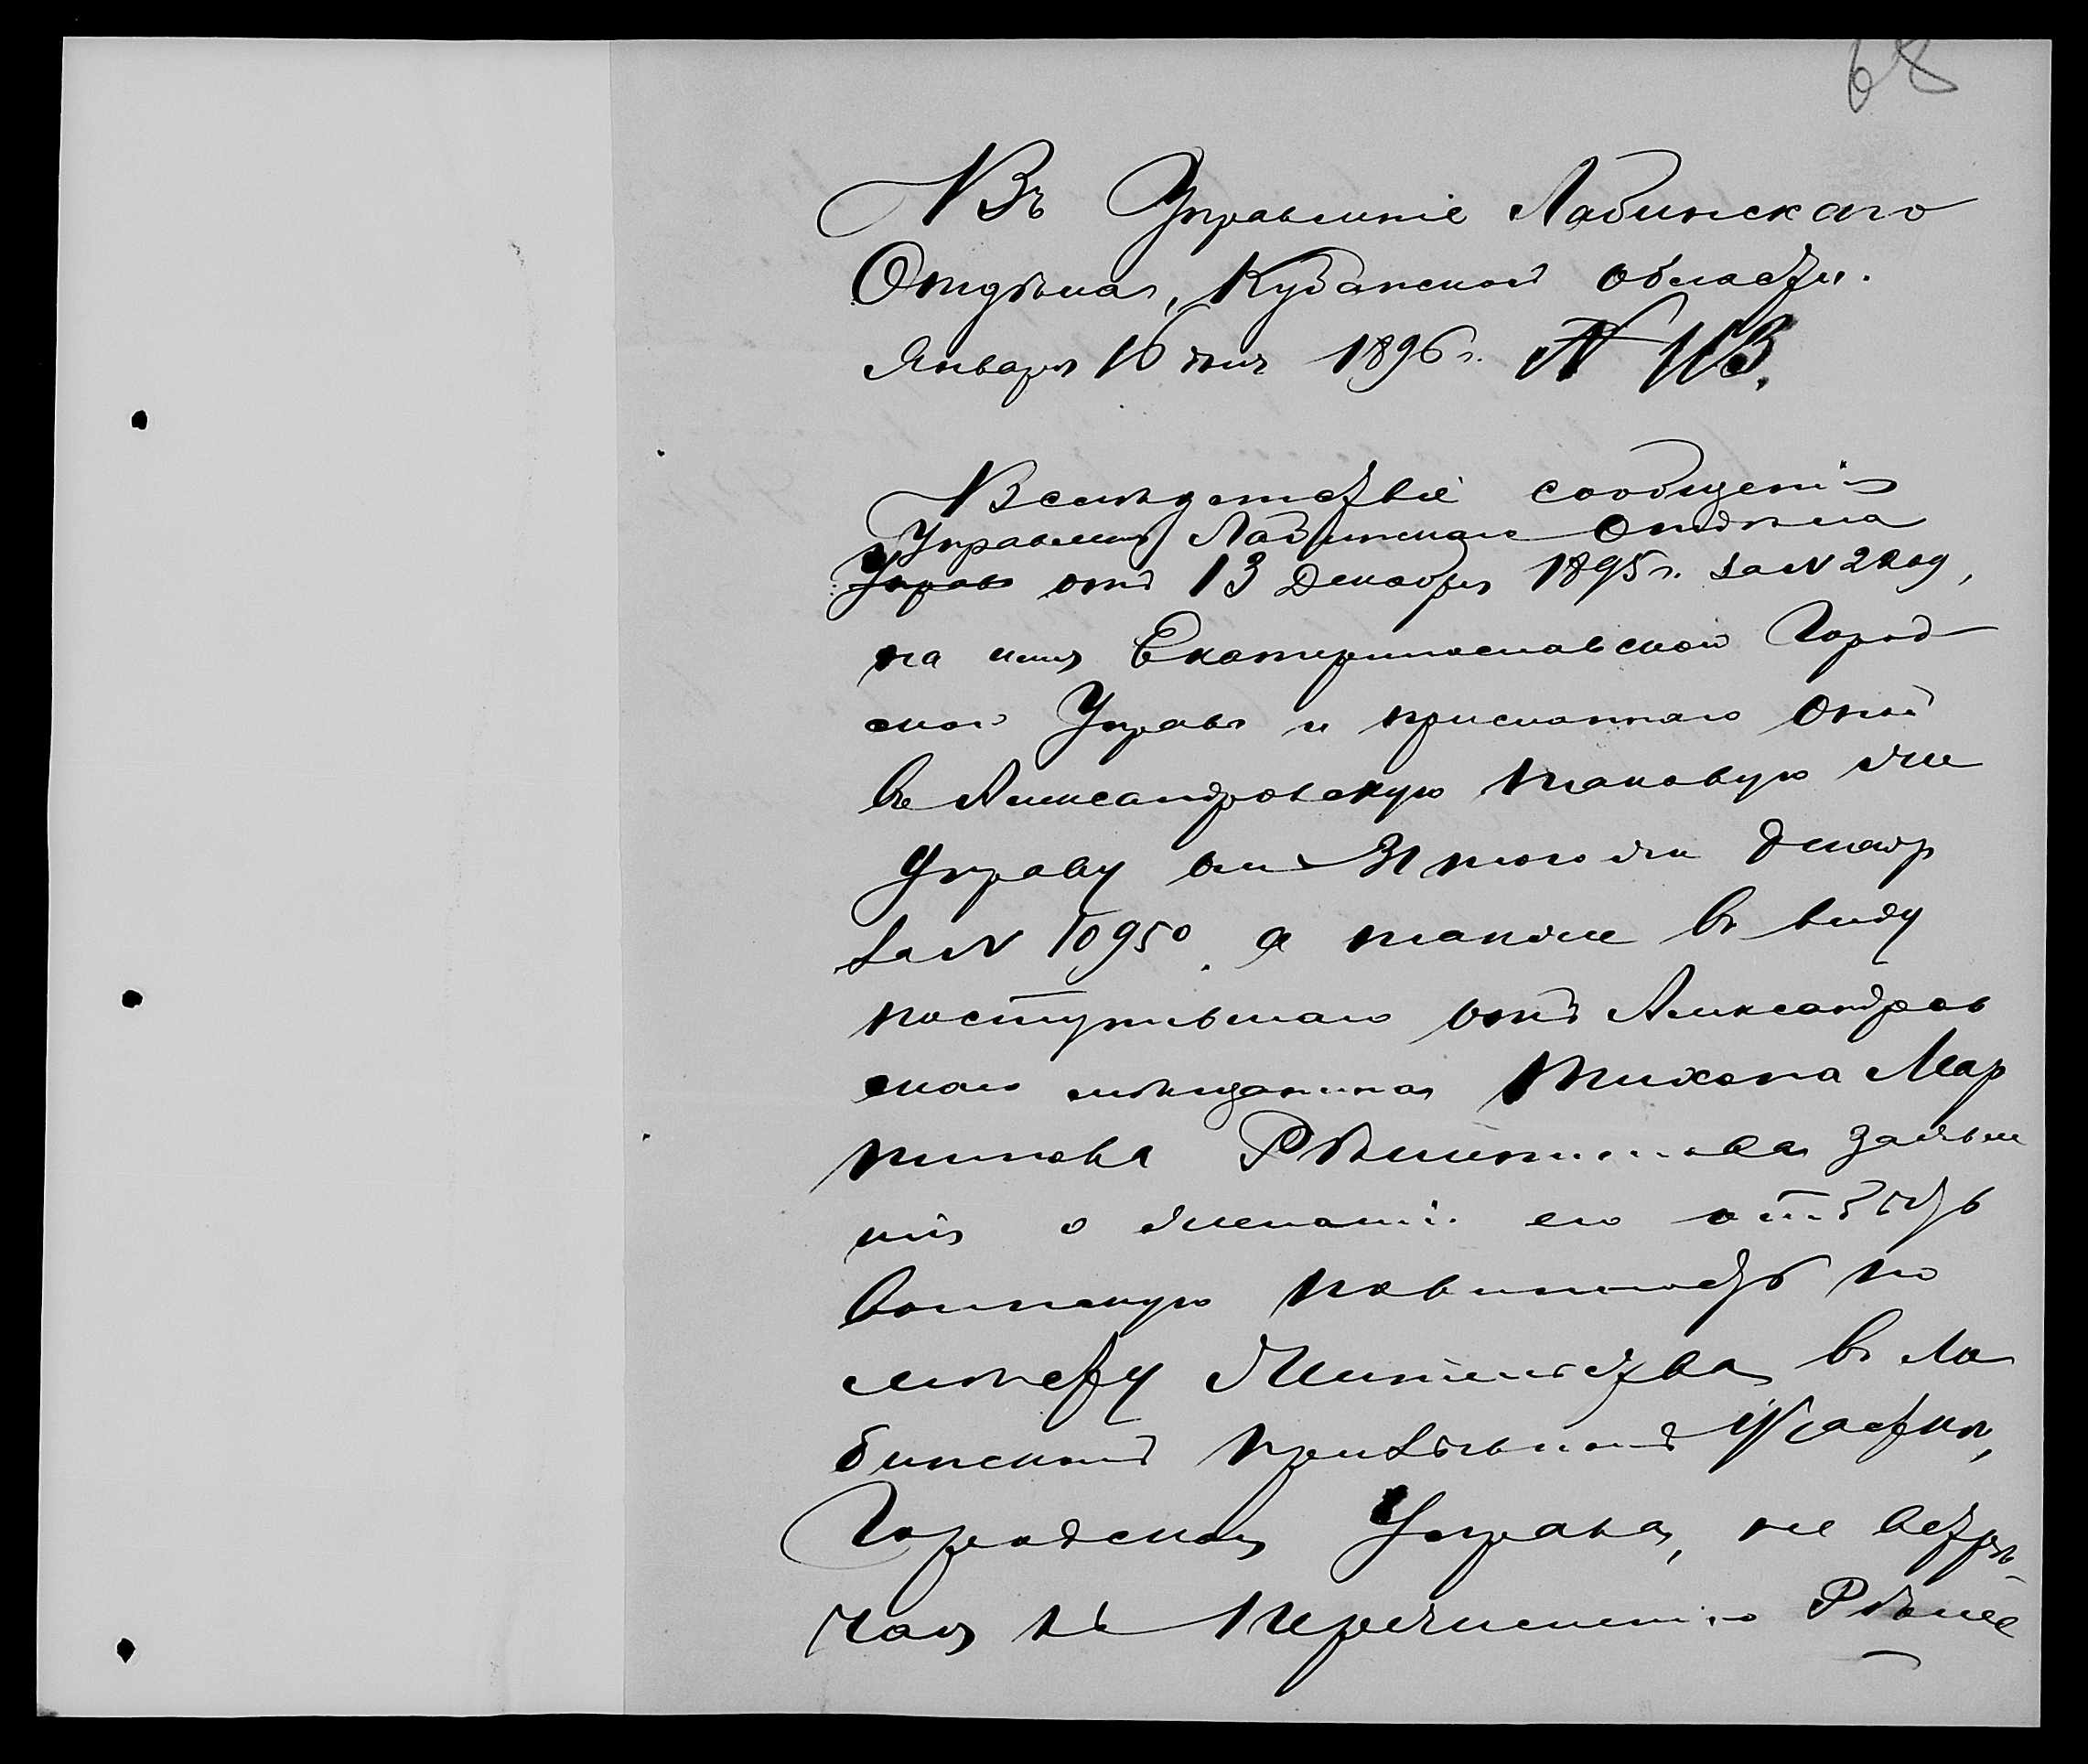 68
Въ Управленіе Лабинскаго
Отдѣла, Кубанской области.
Января 16 дня 1896 г. № 113.
Вслѣдствіе сообщенія
Управленія Лабинскаго Отдѣла
Управ отъ 13 Декабря 1895 г. за №
на имя Екатеринославской Город
ской Управы и присланнаго оной
въ Александровскую таковую же
Управу отъ 31 того же Декабр
за № 10950, а также въ виду
поступившаго отъ Александров
скаго мѣщанина Тихона Мар
тинова Рѣшетникова заявле
нія о желаніи его отбыть
воинскую повинность по
мѣсту жительства въ Ла
бинскомъ призывномъ участкѣ,
Городская Управа, не встрѣ
чая къ перечисленію Рѣше